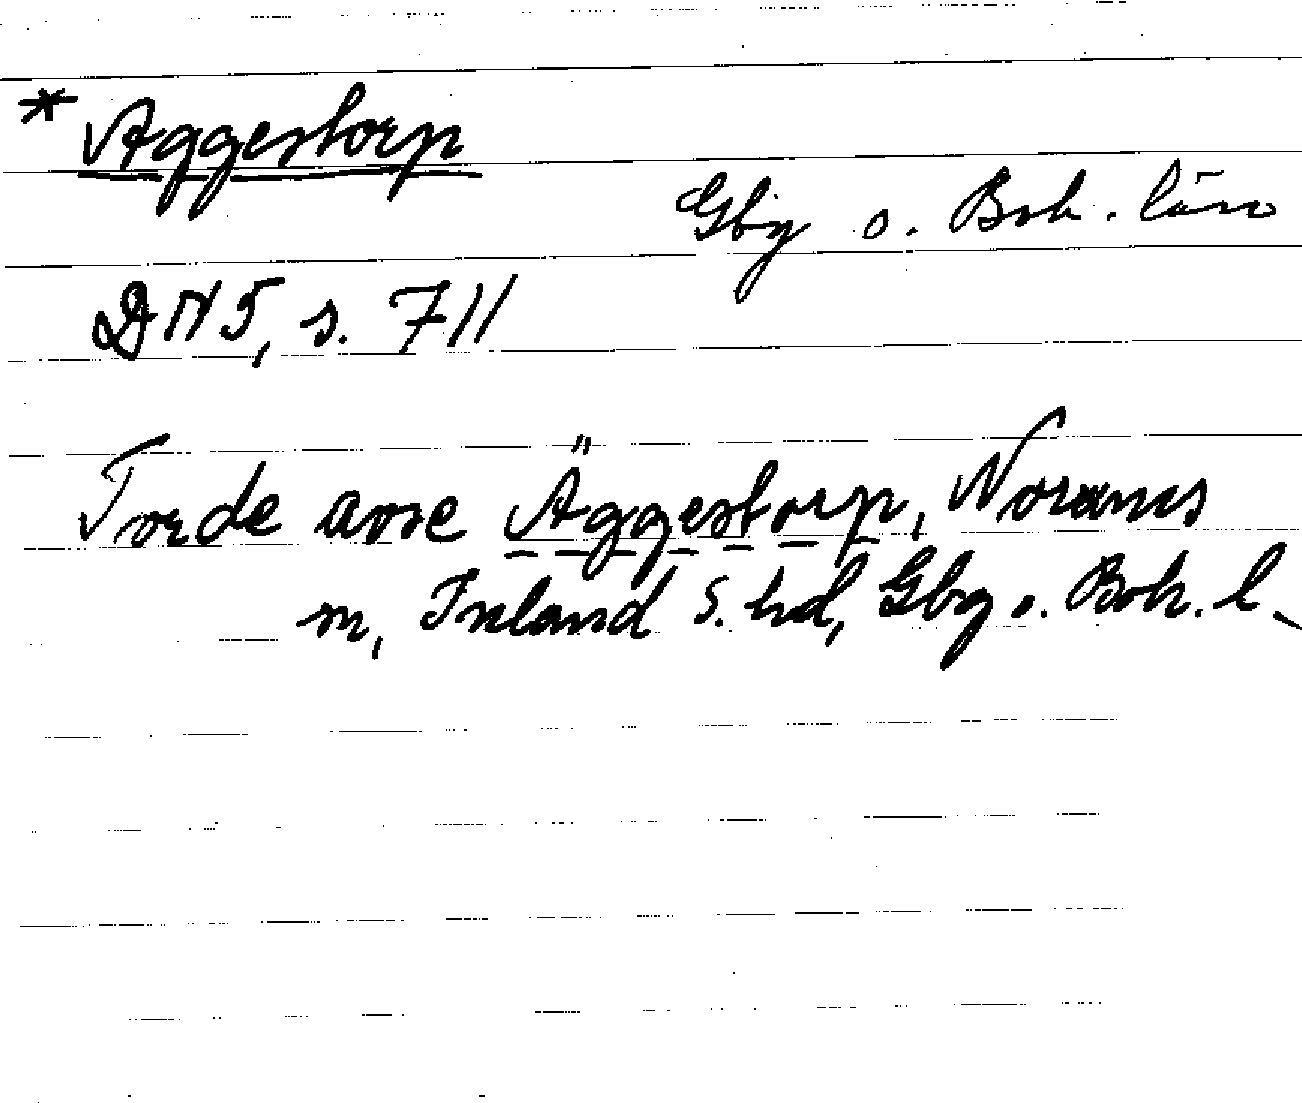 * Aggestorp
Gbg o. Boh. län
DN 5, s. 711
Torde avse Äggestorp, Norums
m, Inland S. hd, Gbg o. Boh. l.